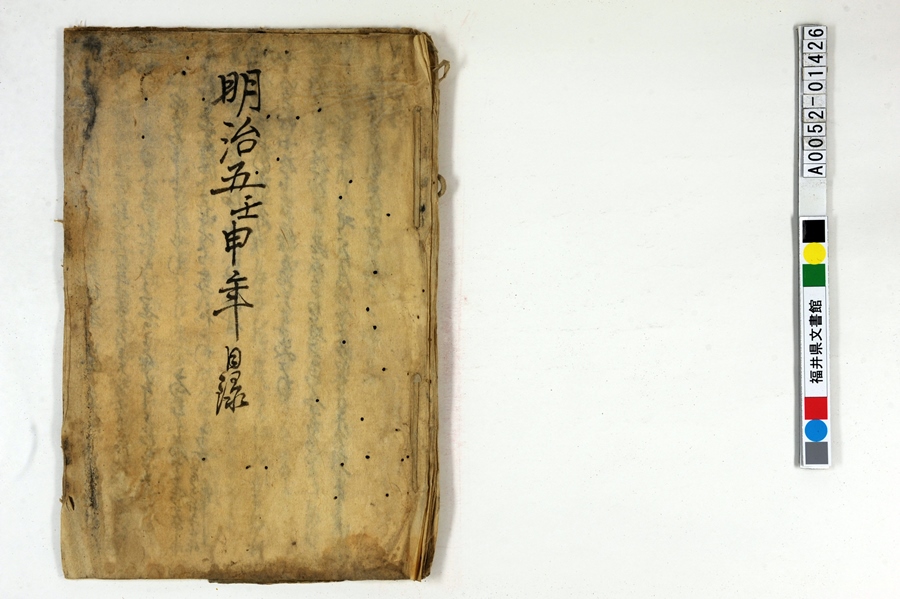 明治五壬申年目録
A0052-01426
福井県文書館